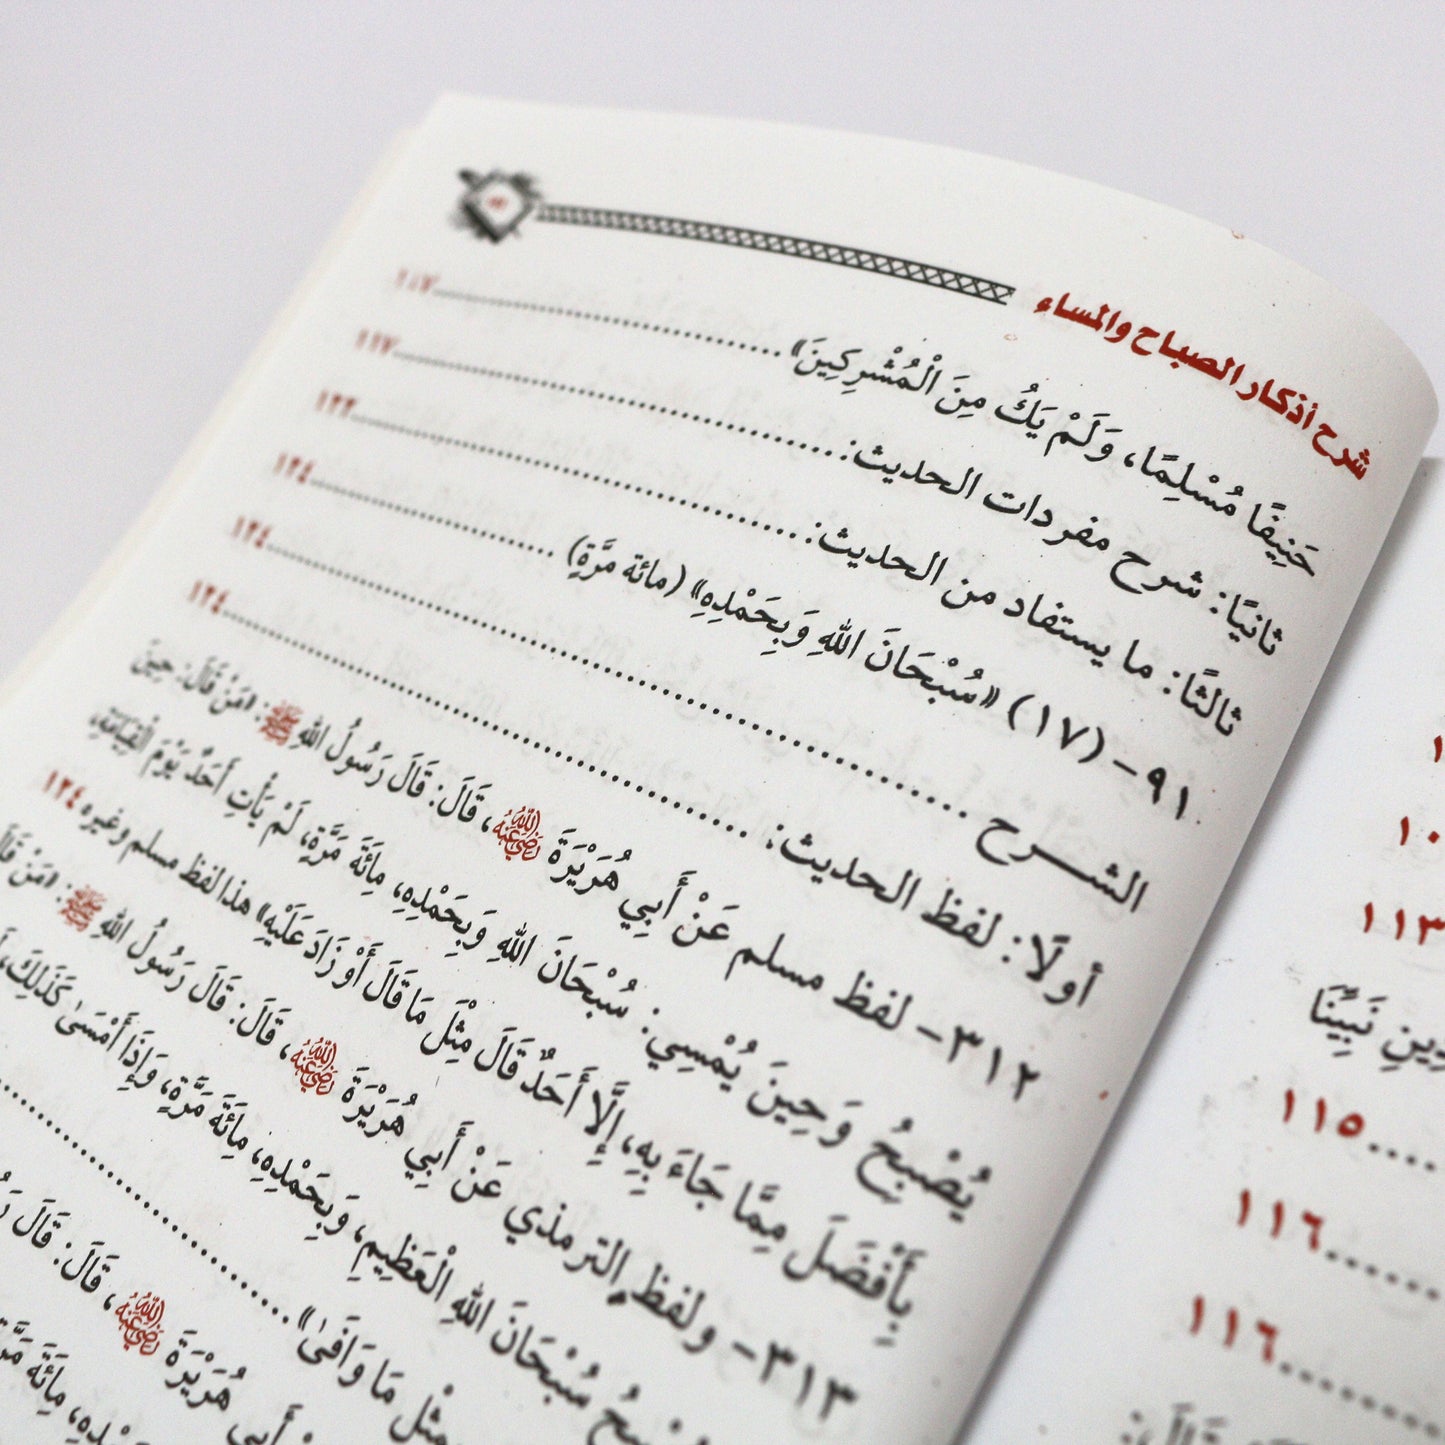 شرح أذكار الصباح والمساء
حَنِيفًا مُسْلِمًا، وَلَمْ يَكُ مِنَ الْمُشْرِكِينَ» ........ ١١٧
ثانيًا: شرح مفردات الحديث: ........ ١١٧
ثالثًا: ما يستفاد من الحديث: ........ ١٢٢
٩١- (١٧) «سُبْحَانَ اللهِ وَبِحَمْدِهِ» (مائة مَرَّةٍ) ........ ١٢٤
الشـــرح ........ ١٢٤
أولًا: لفظ الحديث: ........ ١٢٤
٣١٢- لفظ مسلم عَنْ أَبِي هُرَيْرَةَ رَضِيَ اللَّهُ عَنْهُ، قَالَ: قَالَ رَسُولُ اللهِ ﷺ: «مَنْ قَالَ: حِينَ
يُصْبِحُ وَحِينَ يُمْسِي: سُبْحَانَ اللهِ وَبِحَمْدِهِ، مِائَةَ مَرَّةٍ، لَمْ يَأْتِ أَحَدٌ يَوْمَ الْقِيَامَةِ،
بِأَفْضَلَ مِمَّا جَاءَ بِهِ، إِلَّا أَحَدٌ قَالَ مِثْلَ مَا قَالَ أَوْ زَادَ عَلَيْهِ» هذا لفظ مسلم وغيره ١٢٤
٣١٣- ولفظ الترمذي عَنْ أَبِي هُرَيْرَةَ رَضِيَ اللَّهُ عَنْهُ، قَالَ: قَالَ رَسُولُ اللهِ ﷺ: «مَنْ قَالَ
سُبْحَانَ اللهِ الْعَظِيمِ، وَبِحَمْدِهِ، مِائَةَ مَرَّةٍ، وَإِذَا أَمْسَىٰ كَذَلِكَ،
مِثْلِ مَا وَافَىٰ» ........
أَبِي هُرَيْرَةَ رَضِيَ اللَّهُ عَنْهُ، قَالَ: قَالَ
مِائَةَ
١١٣
نَبِيِّنَا
١١٥
١١٦
١١٦